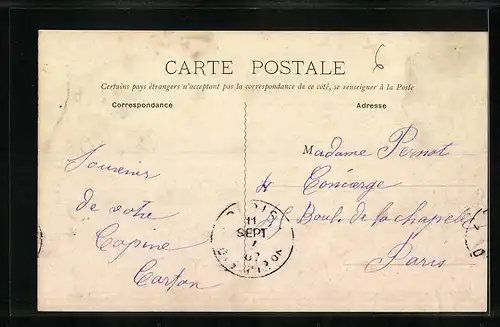 CARTE POSTALE
6
Certains pays étrangers n'acceptant pas la correspondance de ce côté, se renseigner à la Poste
Correspondance
Adresse
Souvenir
de votre
Copine
Carton
Madame Pernot
Concierge
Boul. de la chapelle
Paris
11
SEPT
07